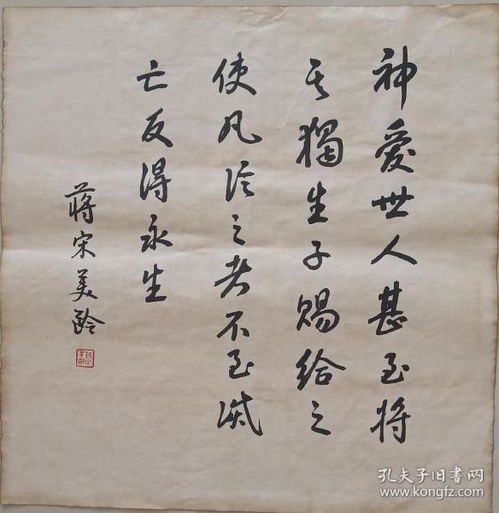 神愛世人甚至将
其獨生子赐给之
使凡信之者不至滅
亡反得永生
蒋宋美齡
孔夫子旧书网
www.kongfz.com